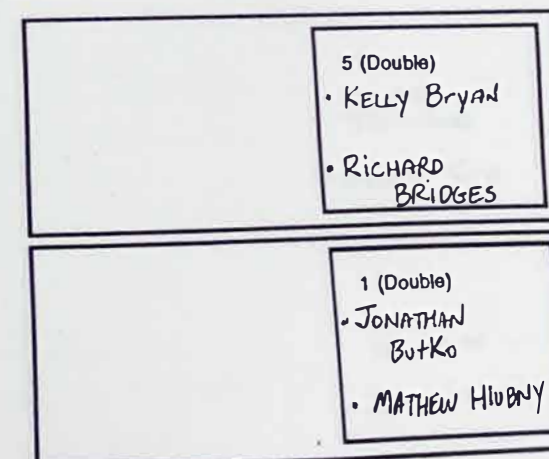 5 (Double)
• KELLY BryAN
• RiCHARD
BRIDGES
1 (Double)
• JONATHAN
ButKo
• MATHEW HlUBNY